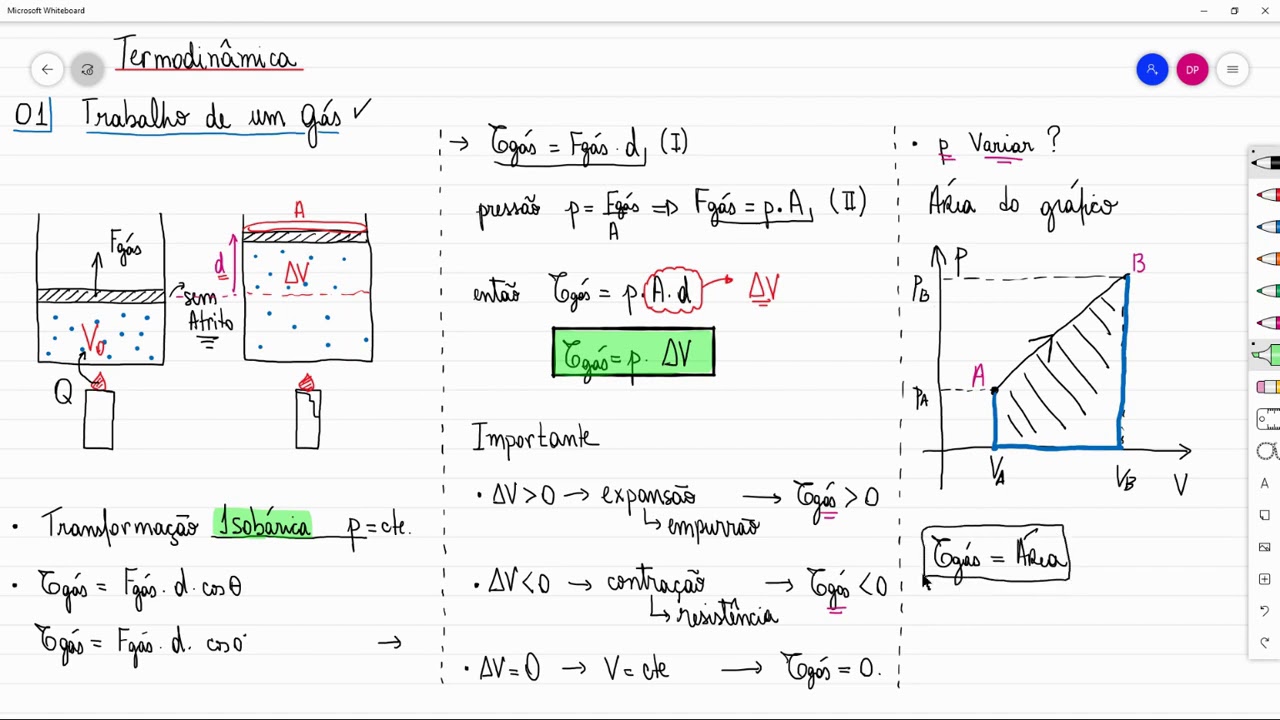 Microsoft Whiteboard
DP
Termodinâmica
01 Trabalho de um gás ✓
Fgás
V₀
Q
sem
Atrito
A
d
ΔV
• Transformação Isobárica p = cte.
• τgás = Fgás · d · cos θ
τgás = Fgás · d · cos 0° →
→ τgás = Fgás · d (I)
pressão p = Fgás/A ⇒ Fgás = p · A (II)
então τgás = p · A · d → ΔV
τgás = p · ΔV
Importante
• ΔV > 0 → expansão → τgás > 0
↳ empurrão
• ΔV < 0 → contração → τgás < 0
↳ resistência
• ΔV = 0 → V = cte → τgás = 0.
• p Variar ?
Área do gráfico
P
B
pB
A
pA
VA
VB
V
τgás = Área
A